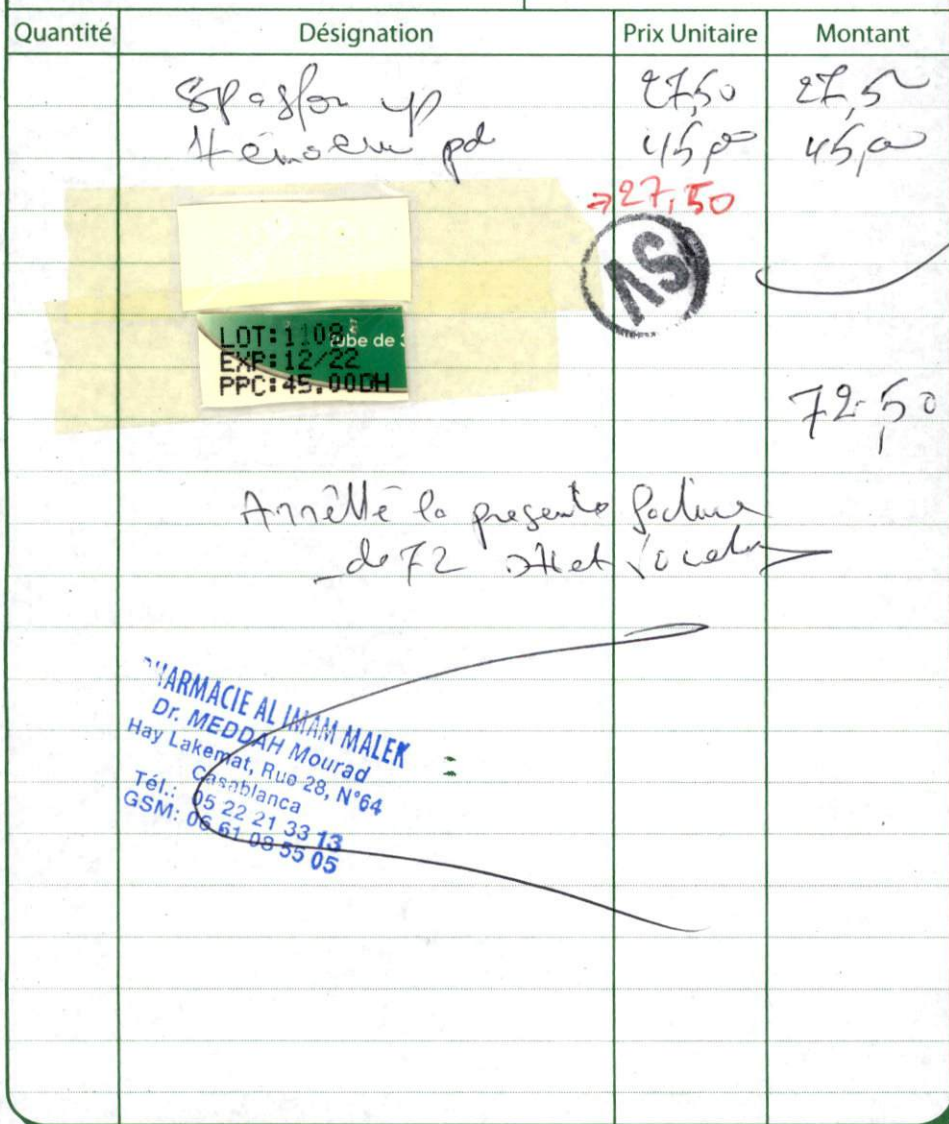 Quantité Désignation Prix Unitaire Montant
Spasfon cp 27,50 27,50
pd 45,00 45,00
→27,50
SV
LOT:1108 tube de 3
EXP:12/22
PPC:45.00DH
72,50
Arrêtté la presente facture
de 72 DH et
PHARMACIE AL IMAM MALEK
Dr. MEDDAH Mourad
Hay Lakemat, Rue 28, N°64
Casablanca
Tél.: 05 22 21 33 13
GSM: 06 61 08 55 05